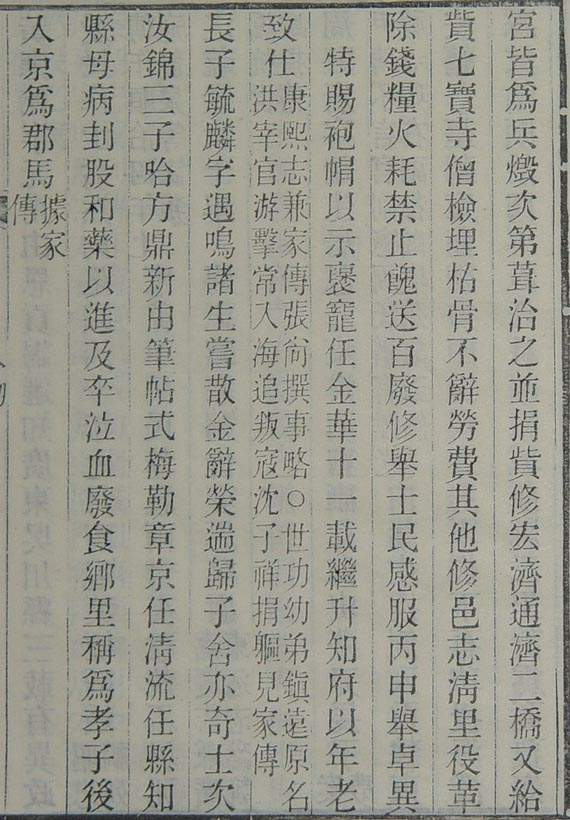 宮皆爲兵燬次第葺治之並捐貲修宏濟通濟二橋又給
貲七寶寺僧檢埋枯骨不辭勞費其他修邑志清里役革
除錢糧火耗禁止餽送百廢修舉士民感服丙申舉卓異
特賜袍帽以示褒寵任金華十一載繼升知府以年老
致仕
康熙志兼家傳張尙撰事略○世功幼弟鎭遠原名
洪宰官游擊常入海追叛寇沈子祥捐軀見家傳
長子毓麟字遇鳴諸生嘗散金辭榮遄歸子舍亦奇士次
汝錦三子哈方鼎新由筆帖式梅勒章京任清流任縣知
縣母病刲股和藥以進及卒泣血廢食鄉里稱爲孝子後
入京爲郡馬
據家
傳